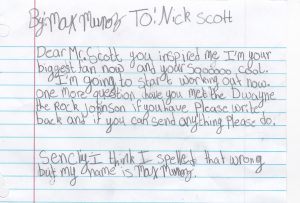 By: Max Munoz TO: Nick Scott
Dear Mr. Scott you inspired me I'm your
biggest fan now and your Sooooo cool.
I'm going to start working out now.
one more question have you met the Dwayne
the Rock Johnson if you have Please write
back and if you can send anything Please do.
Sencly I think I spelled that wrong
but my name is Max Munoz.